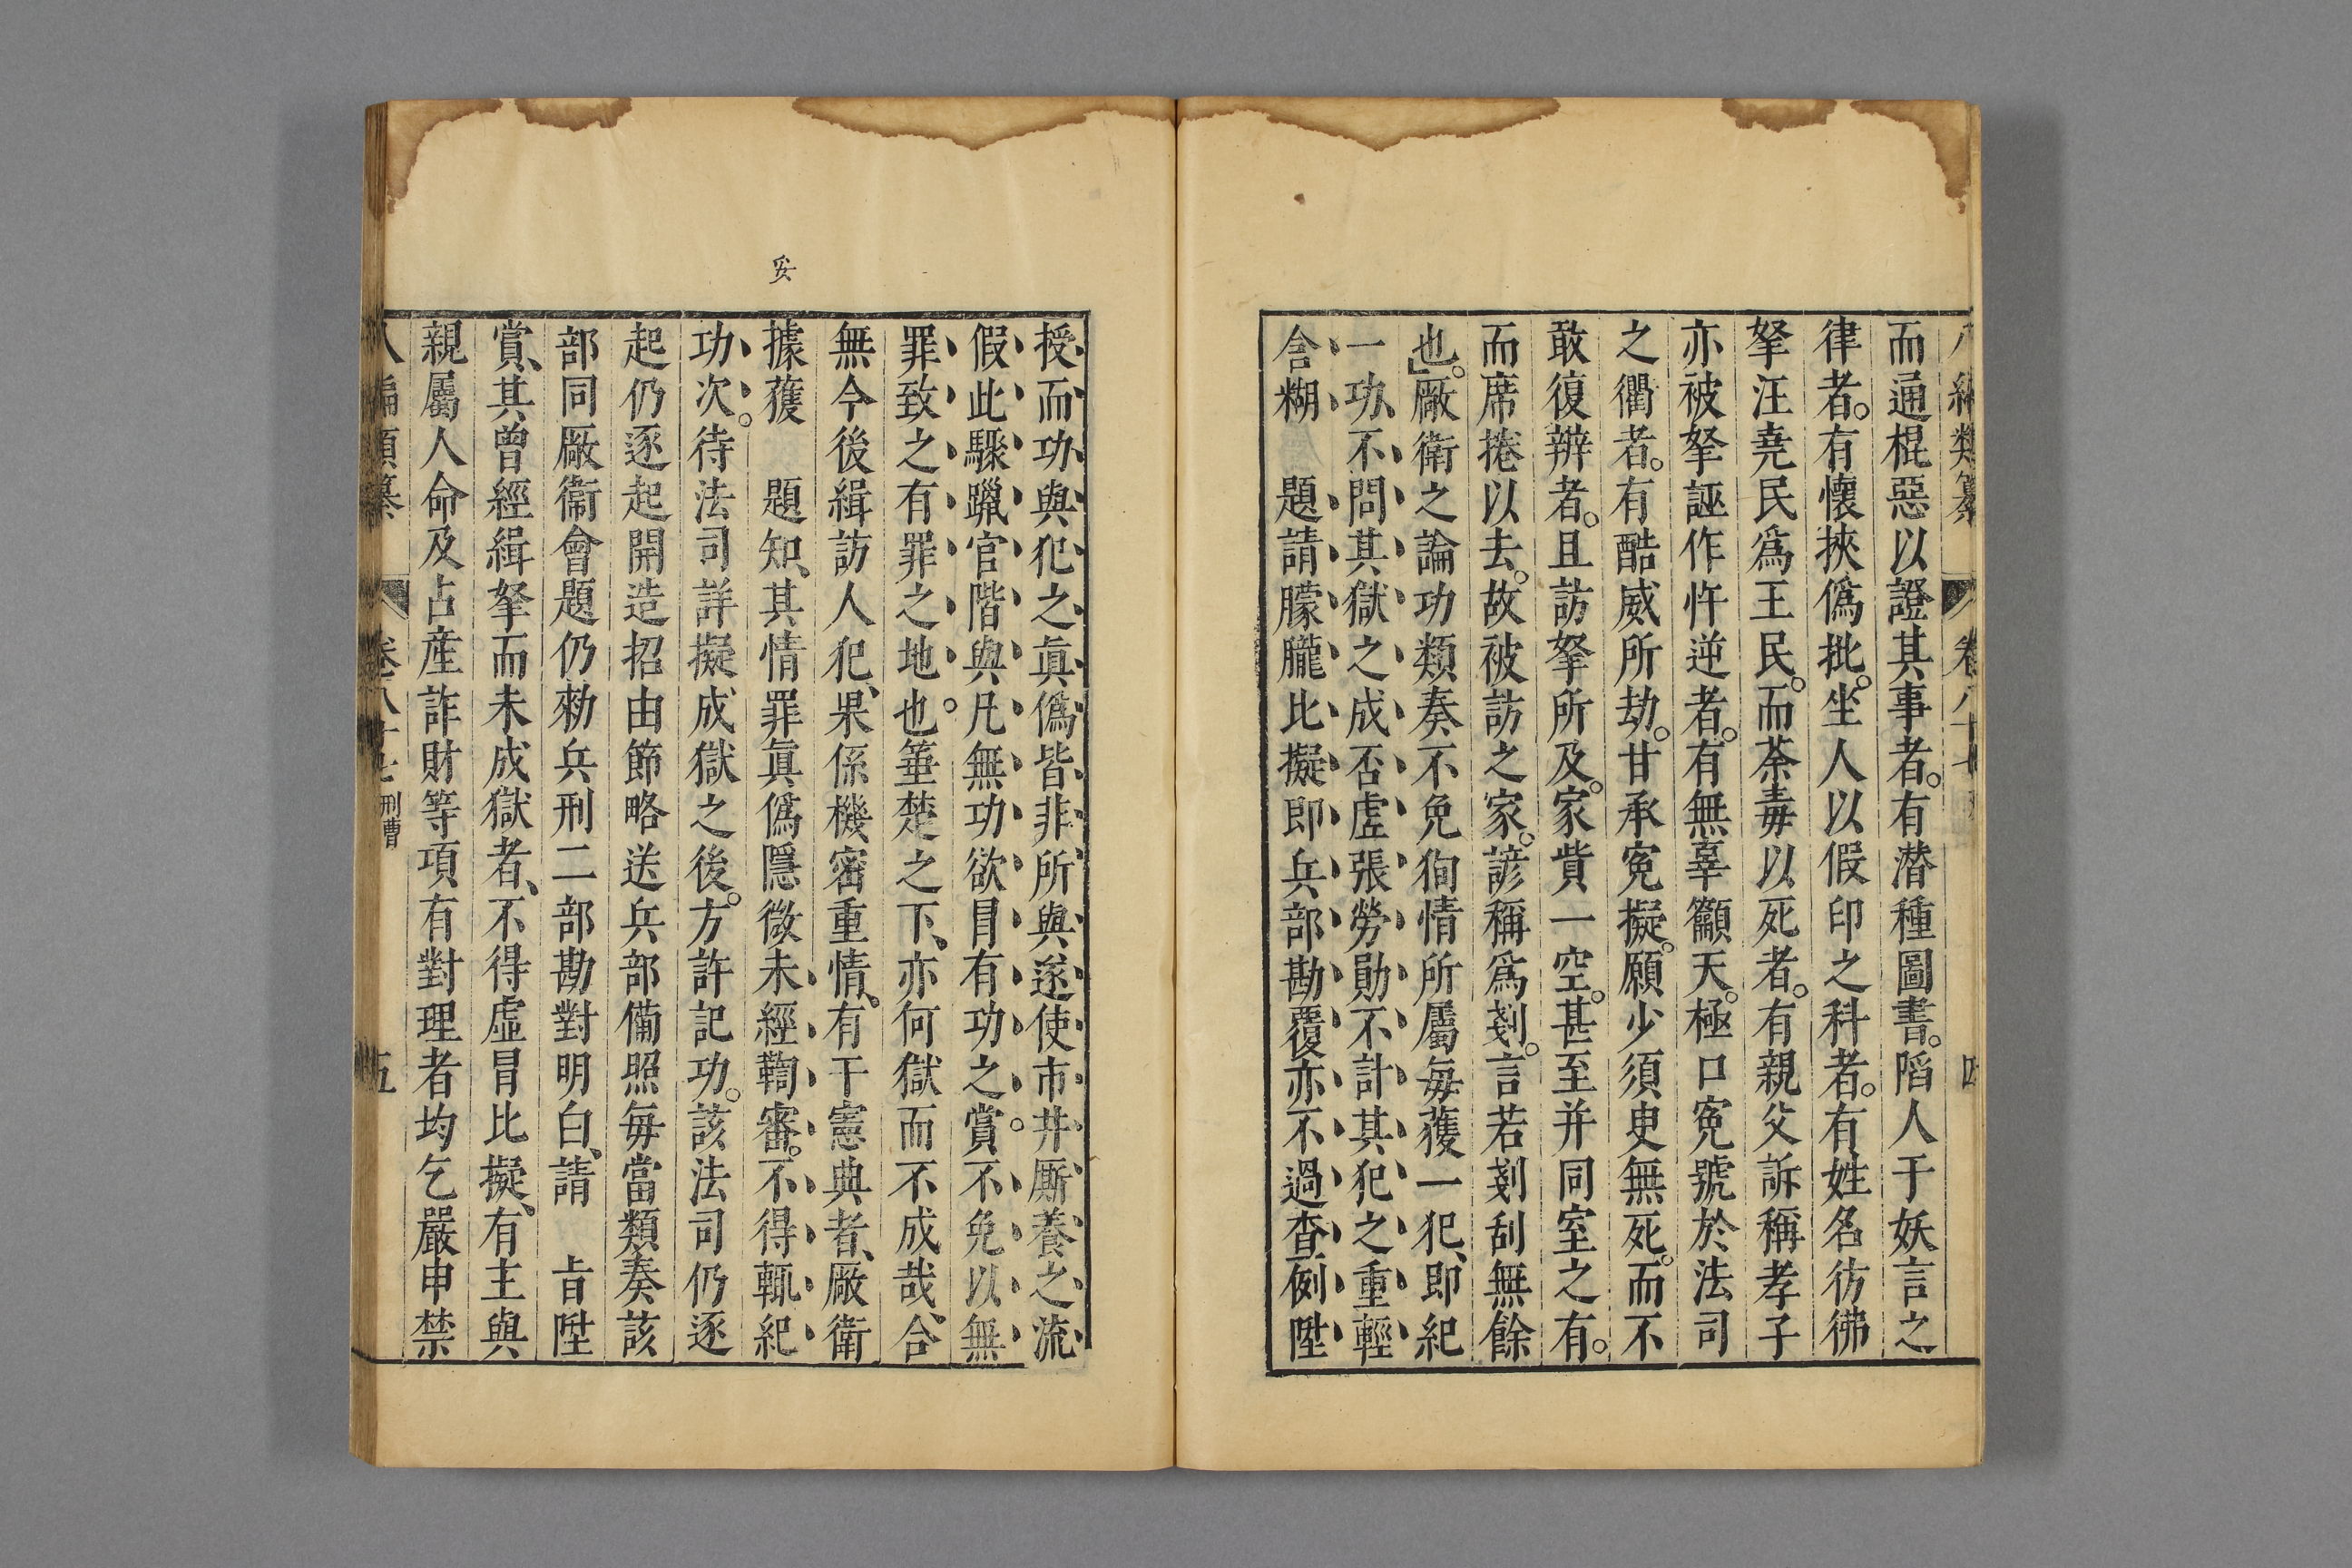 而通棍惡以證其事者。有潜種圖書。陷人于妖言之
律者。有懷挾僞批。坐人以假印之科者。有姓名彷彿
拏汪堯民爲王民。而荼毒以死者。有親父訴稱孝子
亦被拏誣作忤逆者。有無辜籲天。極口寃號於法司
之衢者。有酷威所劫。甘承寃擬。願少須臾無死。而不
敢復辨者。且訪拏所及。家貲一空。甚至并同室之有。
而席捲以去。故被訪之家。諺稱爲剗。言若剗刮無餘
也。厰衛之論功類奏不免狥情所屬每獲一犯、即紀
一功、不問其獄之成否虛張勞勛不計其犯之重輕
含糊　題請朦朧比擬即兵部勘覆亦不過查例陞
授而功與犯之眞僞皆非所與遂使市井厮養之流
假此驟躐官階與凡無功欲冒有功之賞。不免以無
罪致之有罪之地也。箠楚之下、亦何獄而不成哉、合
無今後緝訪人犯、果係機密重情、有干憲典者、厰衛
據獲　題知、其情罪眞僞隱微未經鞫審。不得輒紀
功次。待法司詳擬成獄之後。方許記功。該法司仍逐
起仍逐起開造招由節略送兵部備照每當類奏該
部同厰衞會題仍勑兵刑二部勘對明白、請　旨陞
賞、其曾經緝拏而未成獄者、不得虛冒比擬、有主與
親屬人命及占産詐財等項有對理者均乞嚴申禁
卷八十七 刑曹
五